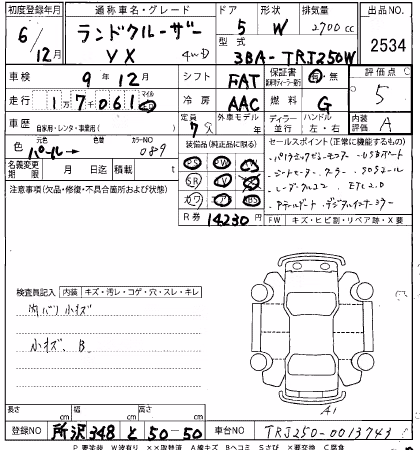 初度登録年月 通称車名・グレード ドア 形状 排気量 出品NO.
6/12月 ランドクルーザー VX 4WD 5 W 2700cc 2534
型式 3BA-TRJ250W
車検 9年12月 シフト FAT 保証書 有 無 評価点
走行 17061 マイル km 冷房 AAC 燃料 G 5
車歴 自家用・レンタ・事業用( ) 定員 7人 外車モデル年 ディーラー 並行 ハンドル 左・右 内装 A
色 元色 パール 色替 カラーNO 089
装備品(純正品に限る) セールスポイント(正常に機能するもの)
PS SR カワ エア
名義変更期限 月 日迄 積載量 t
・シートヒーター・クーラー
ETC2.0
・デジタルインナーミラー
注意事項(欠品・修復・不具合箇所および状態)
R券 14230円 FW キズ・ヒビ割・リペア跡・X要
検査員記入 内装 キズ・汚レ・コゲ・穴・スレ・キレ
内バリ小キズ
小キズ、B
A1
長さ cm 幅 cm 高さ cm
登録NO 所沢 348 と 50-50 車台NO TRJ250-0013743
P 要塗装 W波有り ××取替済 A線キズ Bヘコミ Sさび ×要交換 C腐食